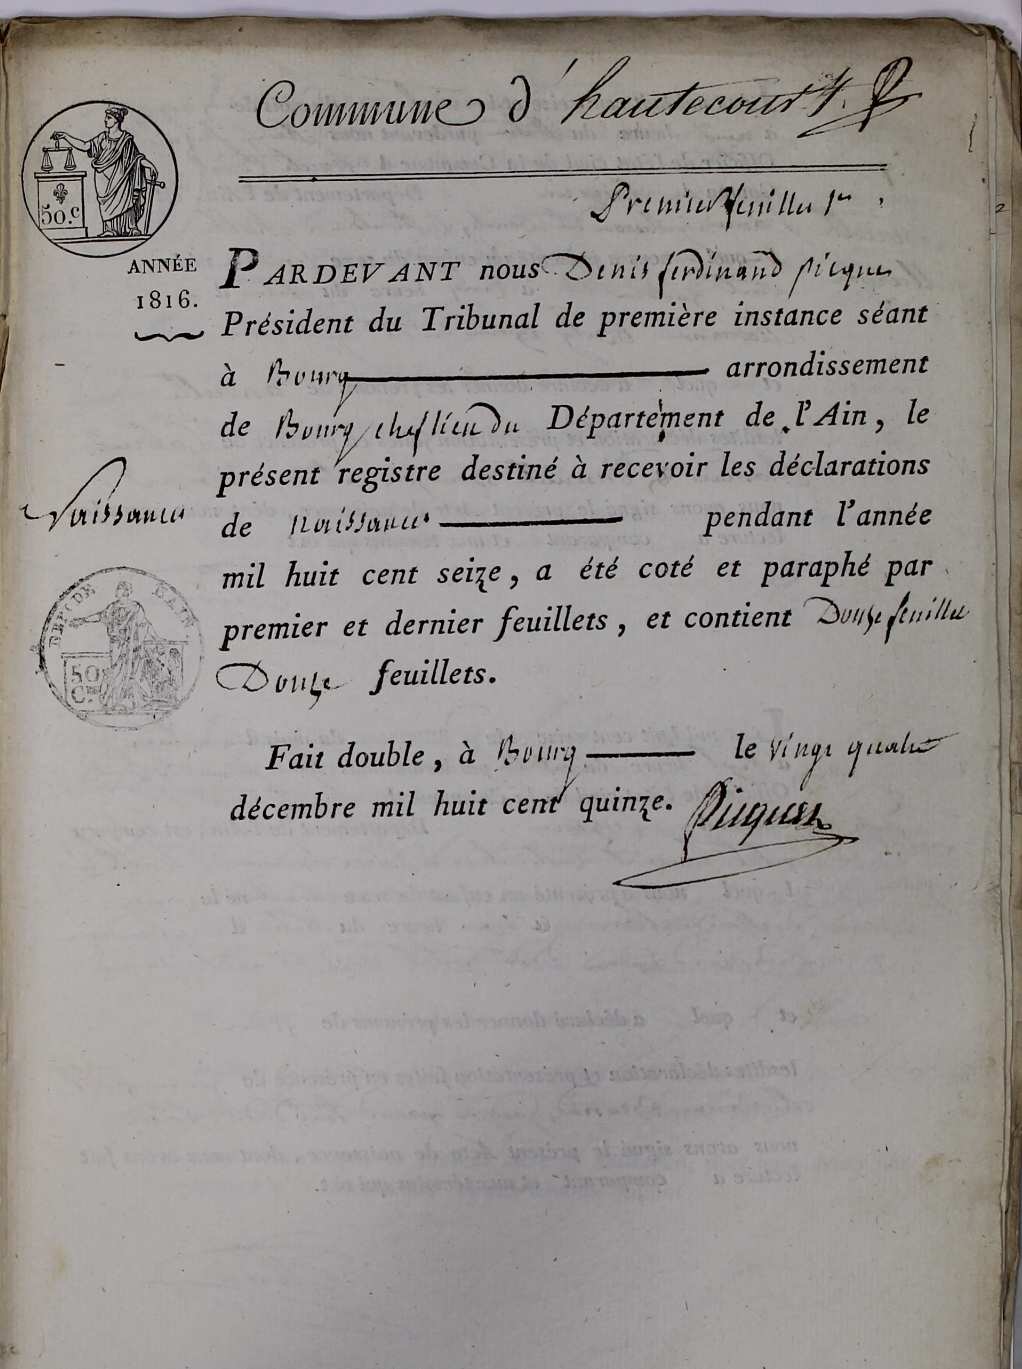 Commune d'hautecourt.
Premier feuillet 1er
50.c
ANNÉE
1816.
PARDEVANT nous Denis ferdinand picquet
Président du Tribunal de première instance séant
à Bourg arrondissement
de Bourg chef lieu du Département de l'Ain, le
présent registre destiné à recevoir les déclarations
Naissances
de naissances pendant l'année
mil huit cent seize, a été coté et paraphé par
premier et dernier feuillets, et contient Douze feuillets
Douze feuillets.
50
Cmes
Fait double, à Bourg le vingt quatre
décembre mil huit cent quinze. Picquet